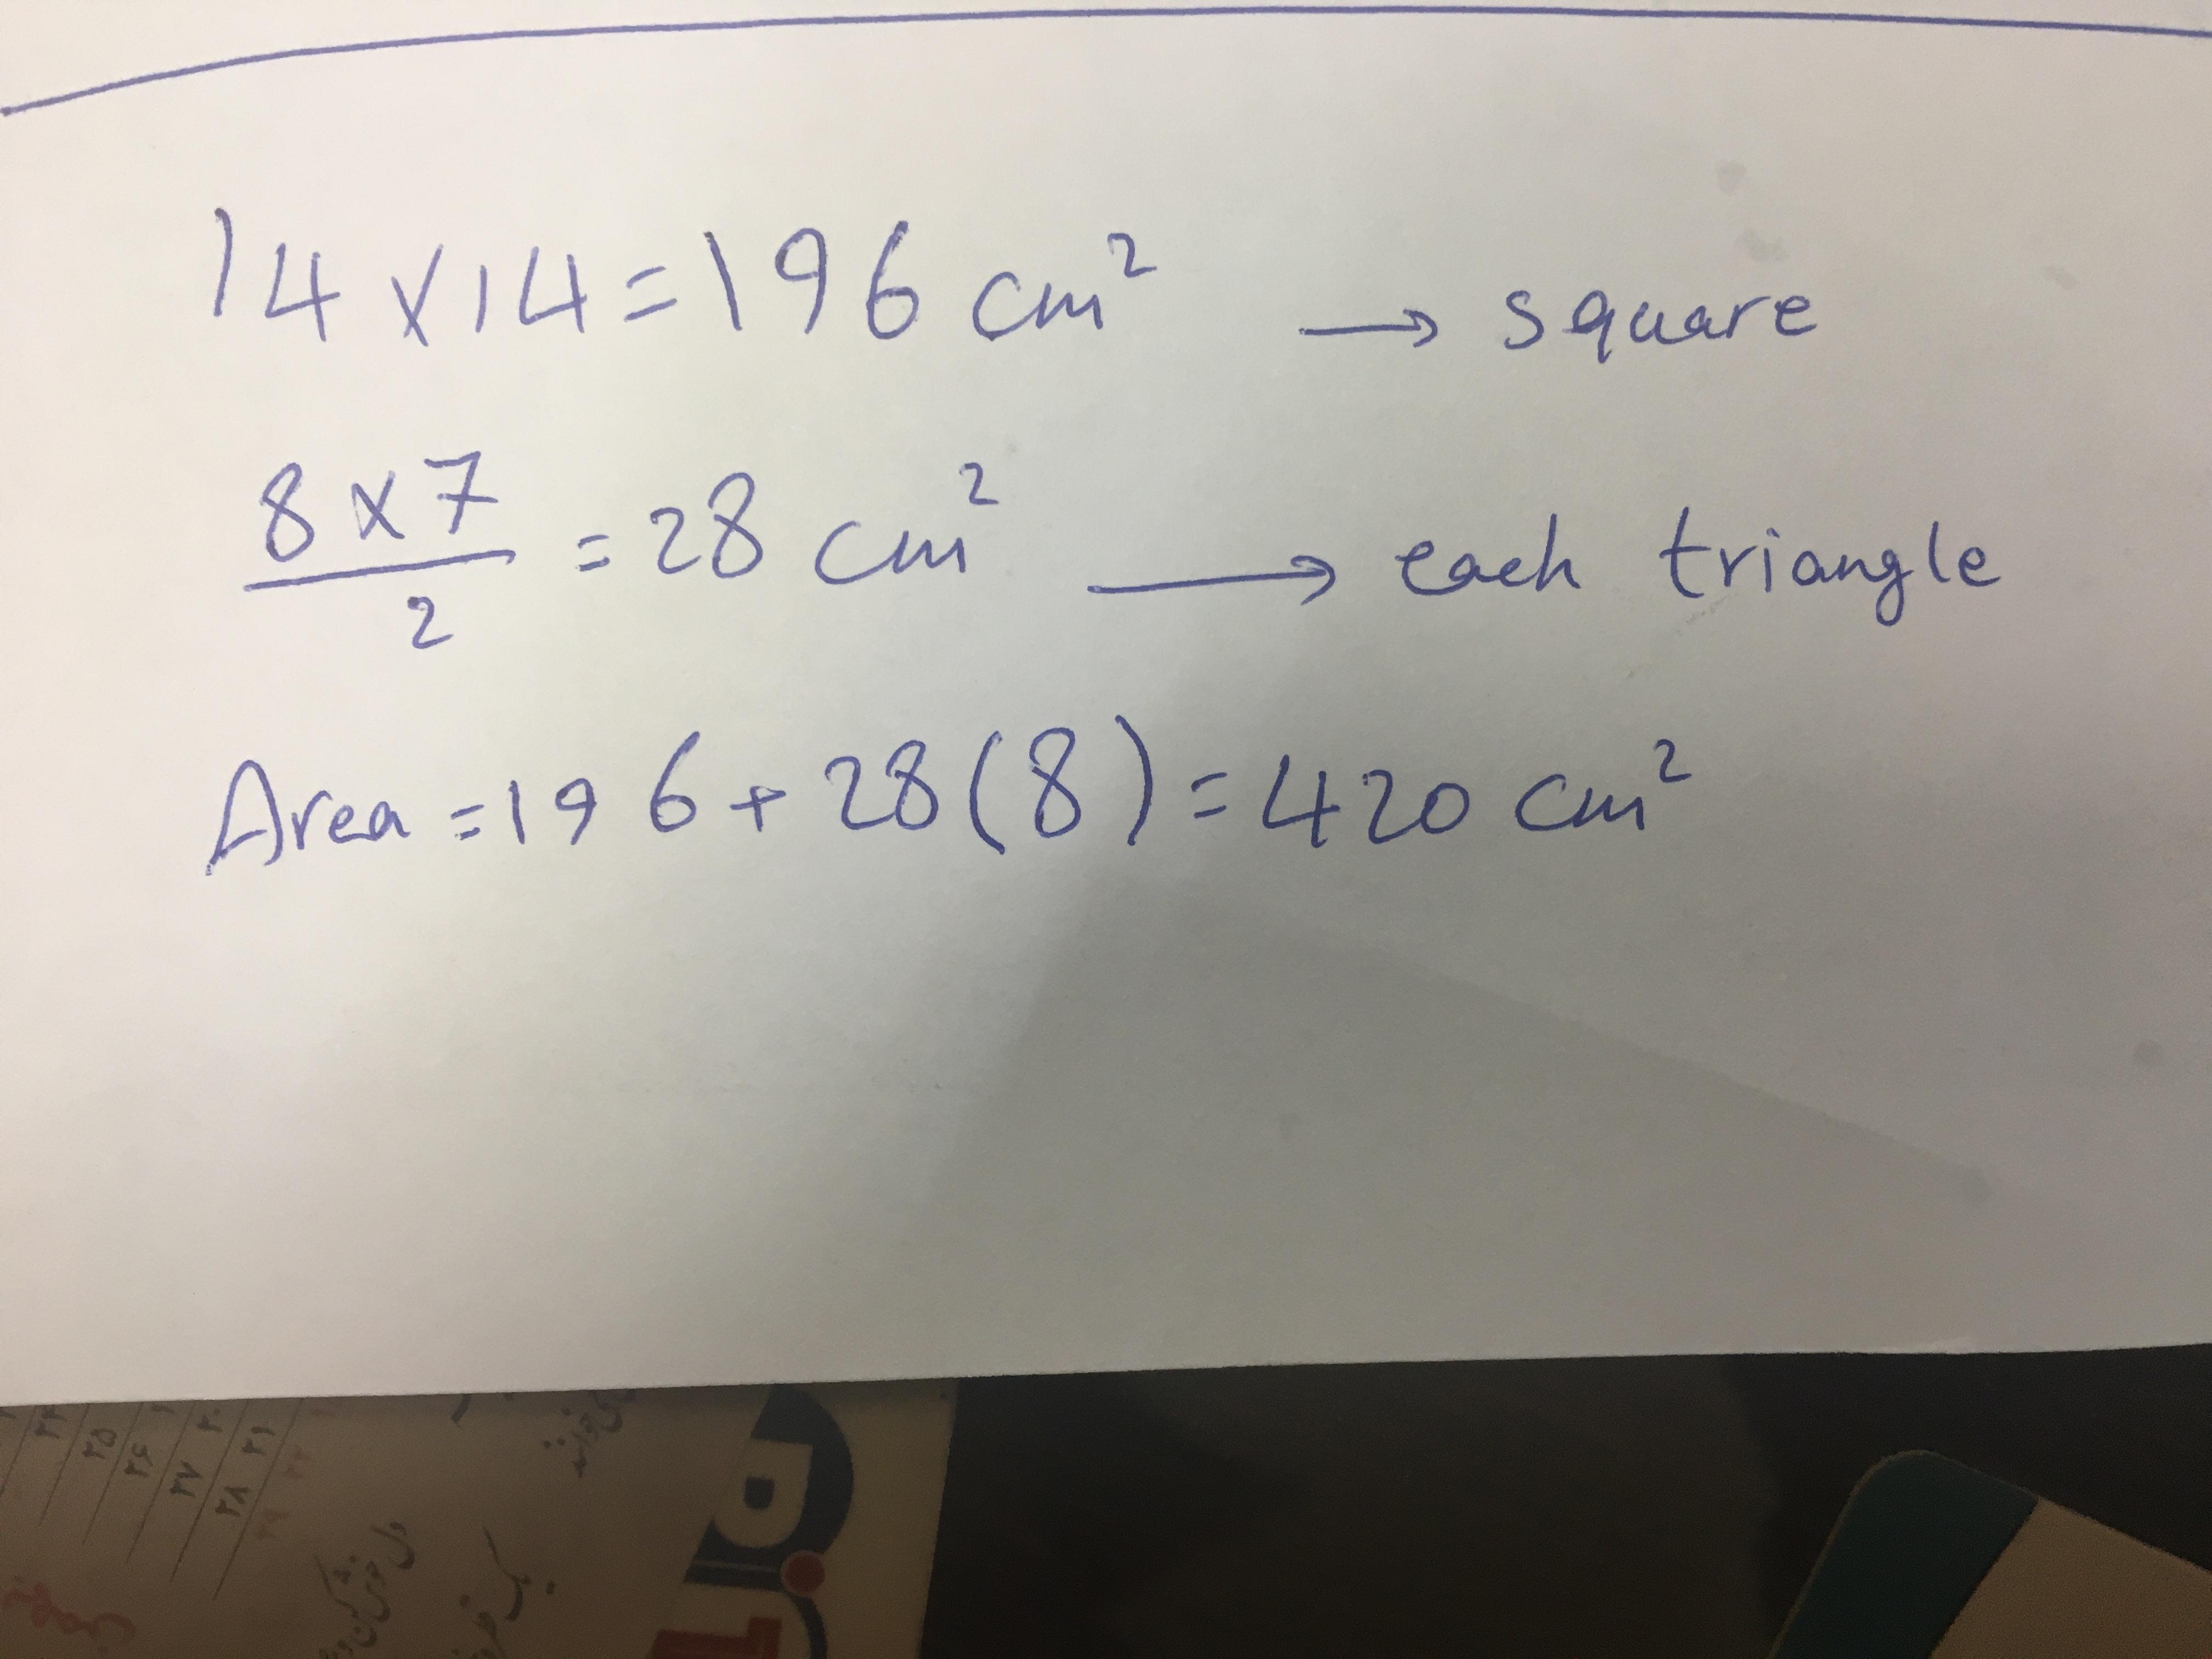 14 × 14 = 196 cm²  → square
8 × 7 / 2 = 28 cm²  → each triangle
Area = 196 + 28(8) = 420 cm²
۲۵
۲۶
۲۷ ۲۰
۲۸ ۲۱